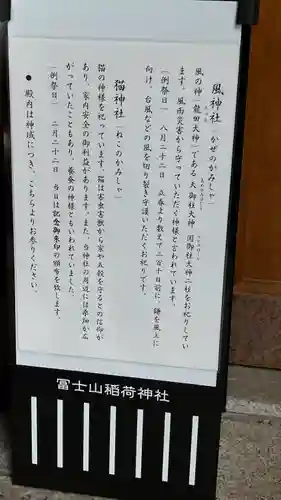 風神社（かぜのかみしゃ）
風の神（龍田大神）である天御柱大神　国御柱大神二柱をお祀りしてい
ます。風雨災害から守っていただく神様と言われています。
（例祭日）　八月二十二日　立春より数えて二百十日前に、鎌を風上に
向け、台風などの風を切り裂き守護いただくお祀りです。
猫神社（ねこのかみしゃ）
猫の神様を祀っています。猫は害虫害獣から家や五穀を守るとの信仰が
あり、家内安全の御利益があります。また、当神社の周辺には桑畑が広
がっていたこともあり、養蚕の神様ともいわれていました。
（例祭日）　二月二十二日　当日は記念御朱印の頒布を致します。
● 殿内は神域につき、こちらよりお参りください。
冨士山稲荷神社